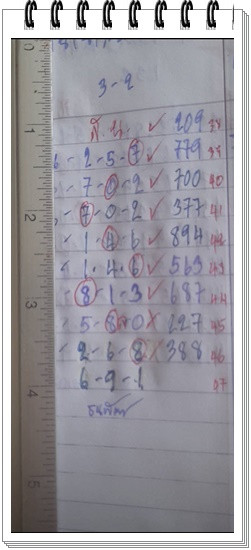 3-2
ส.น. ✓ 209 38
6-2-5-7 ✓ 779 39
-7-0-2 ✓ 700 40
-7-0-2 ✓ 377 41
-1-4-6 ✓ 894 42
1-4-6 ✓ 563 43
-8-1-3 ✓ 687 44
-5-8-0 X 227 45
-2-6-8 X 388 46
6-9-1 47
1
2
3
4
5